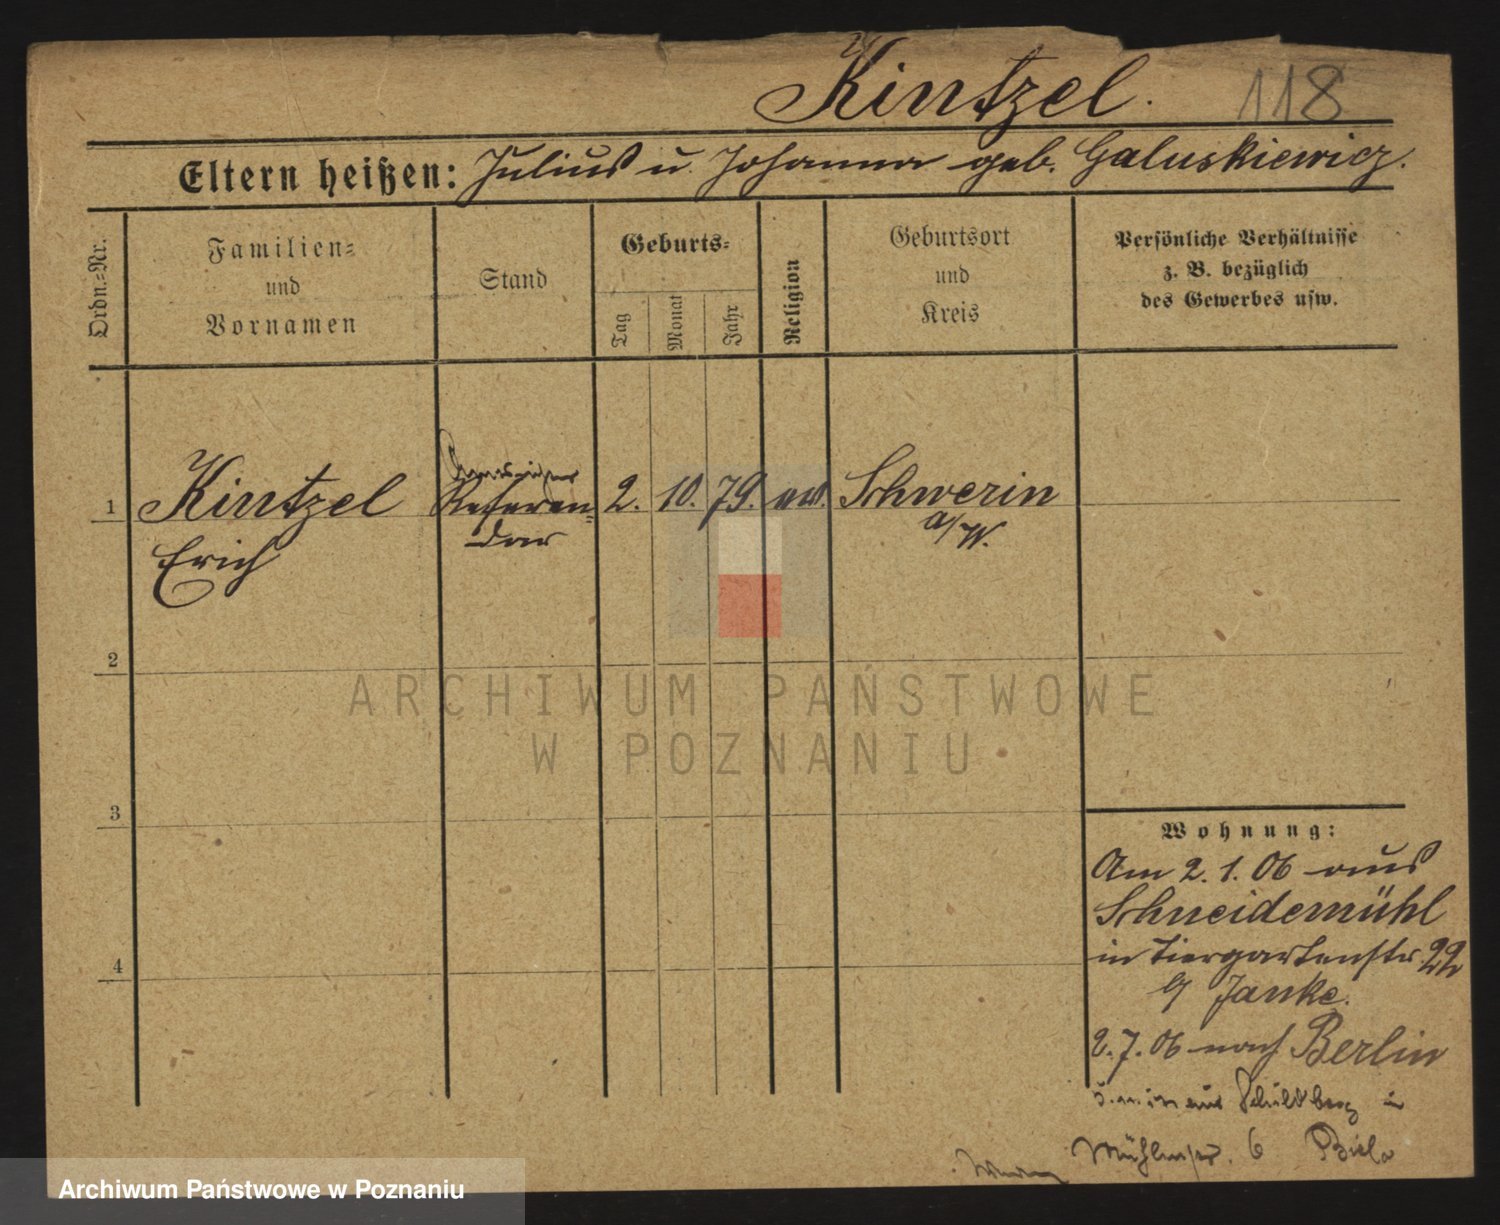 Kintzel. 118
Eltern heißen: Julius u. Johanna geb. Galuskiewicz.
Ordn.-Nr.
Familien-
und
Vornamen
Stand
Geburts-
Tag
Monat
Jahr
Religion
Geburtsort
und
Kreis
Persönliche Verhältnisse
z. B. bezüglich
des Gewerbes usw.
1 Kintzel Referen- 2. 10. 79. ev. Schwerin
dar a/W.
Erich
2
3
4
Wohnung:
Am 2. 1. 06 aus
Schneidemühl
in Tiergartenstr. 22
b/ Janke.
2. 7. 06 nach Berlin
aus Schildberg in
Mühlenstr. 6
ARCHIWUM PAŃSTWOWE
W POZNANIU
Archiwum Państwowe w Poznaniu